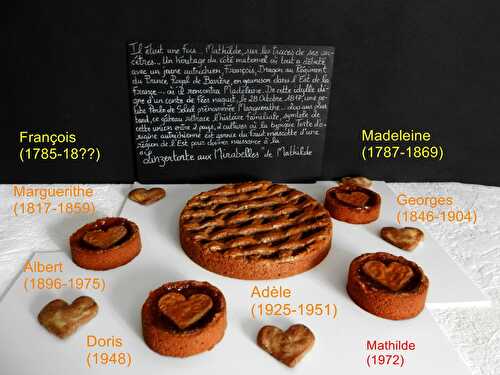 Il était une fois... Mathilde, sur les traces de ses an-
cêtres... Un héritage du côté maternel où tout a débuté
avec un jeune autrichien, François, Dragon au Régiment
du Prince Royal de Bavière, en garnison dans l'Est de la
France... où il rencontra Madeleine. De cette idylle di-
gne d'un conte de Fées naquit, le 28 Octobre 1817, une pe-
tite Perle de Soleil prénommée Marguerithe...
bord, ce gâteau retrace l'histoire familiale, symbole de
cette union entre 2 pays, 2 cultures où la typique Torte de
cuisine autrichienne est garnie du fruit mascotte d'une
région de l'Est pour donner naissance à la
"Linzertorte aux Mirabelles" de Mathilde
François
(1785-18??)
Madeleine
(1787-1869)
Marguerithe
(1817-1859)
Georges
(1846-1904)
Albert
(1896-1975)
Adèle
(1925-1951)
Doris
(1948)
Mathilde
(1972)